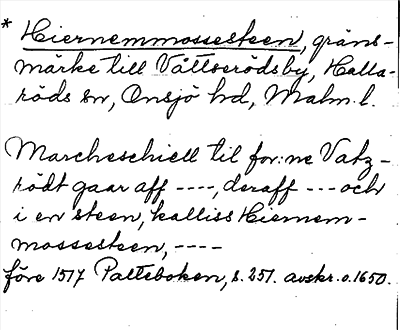 * Hiernemmossesteen, gräns-
märke till Vättserödsby, Halla-
röds sn, Onsjö hd, Malm. l.
Marcheschiell til for:ne Vatz-
rödt gaar aff ----, deraff --- och
i en steen, kalliss Hiernem-
mossesteen, ----
före 1517 Palteboken, s. 251. avskr. o. 1650.